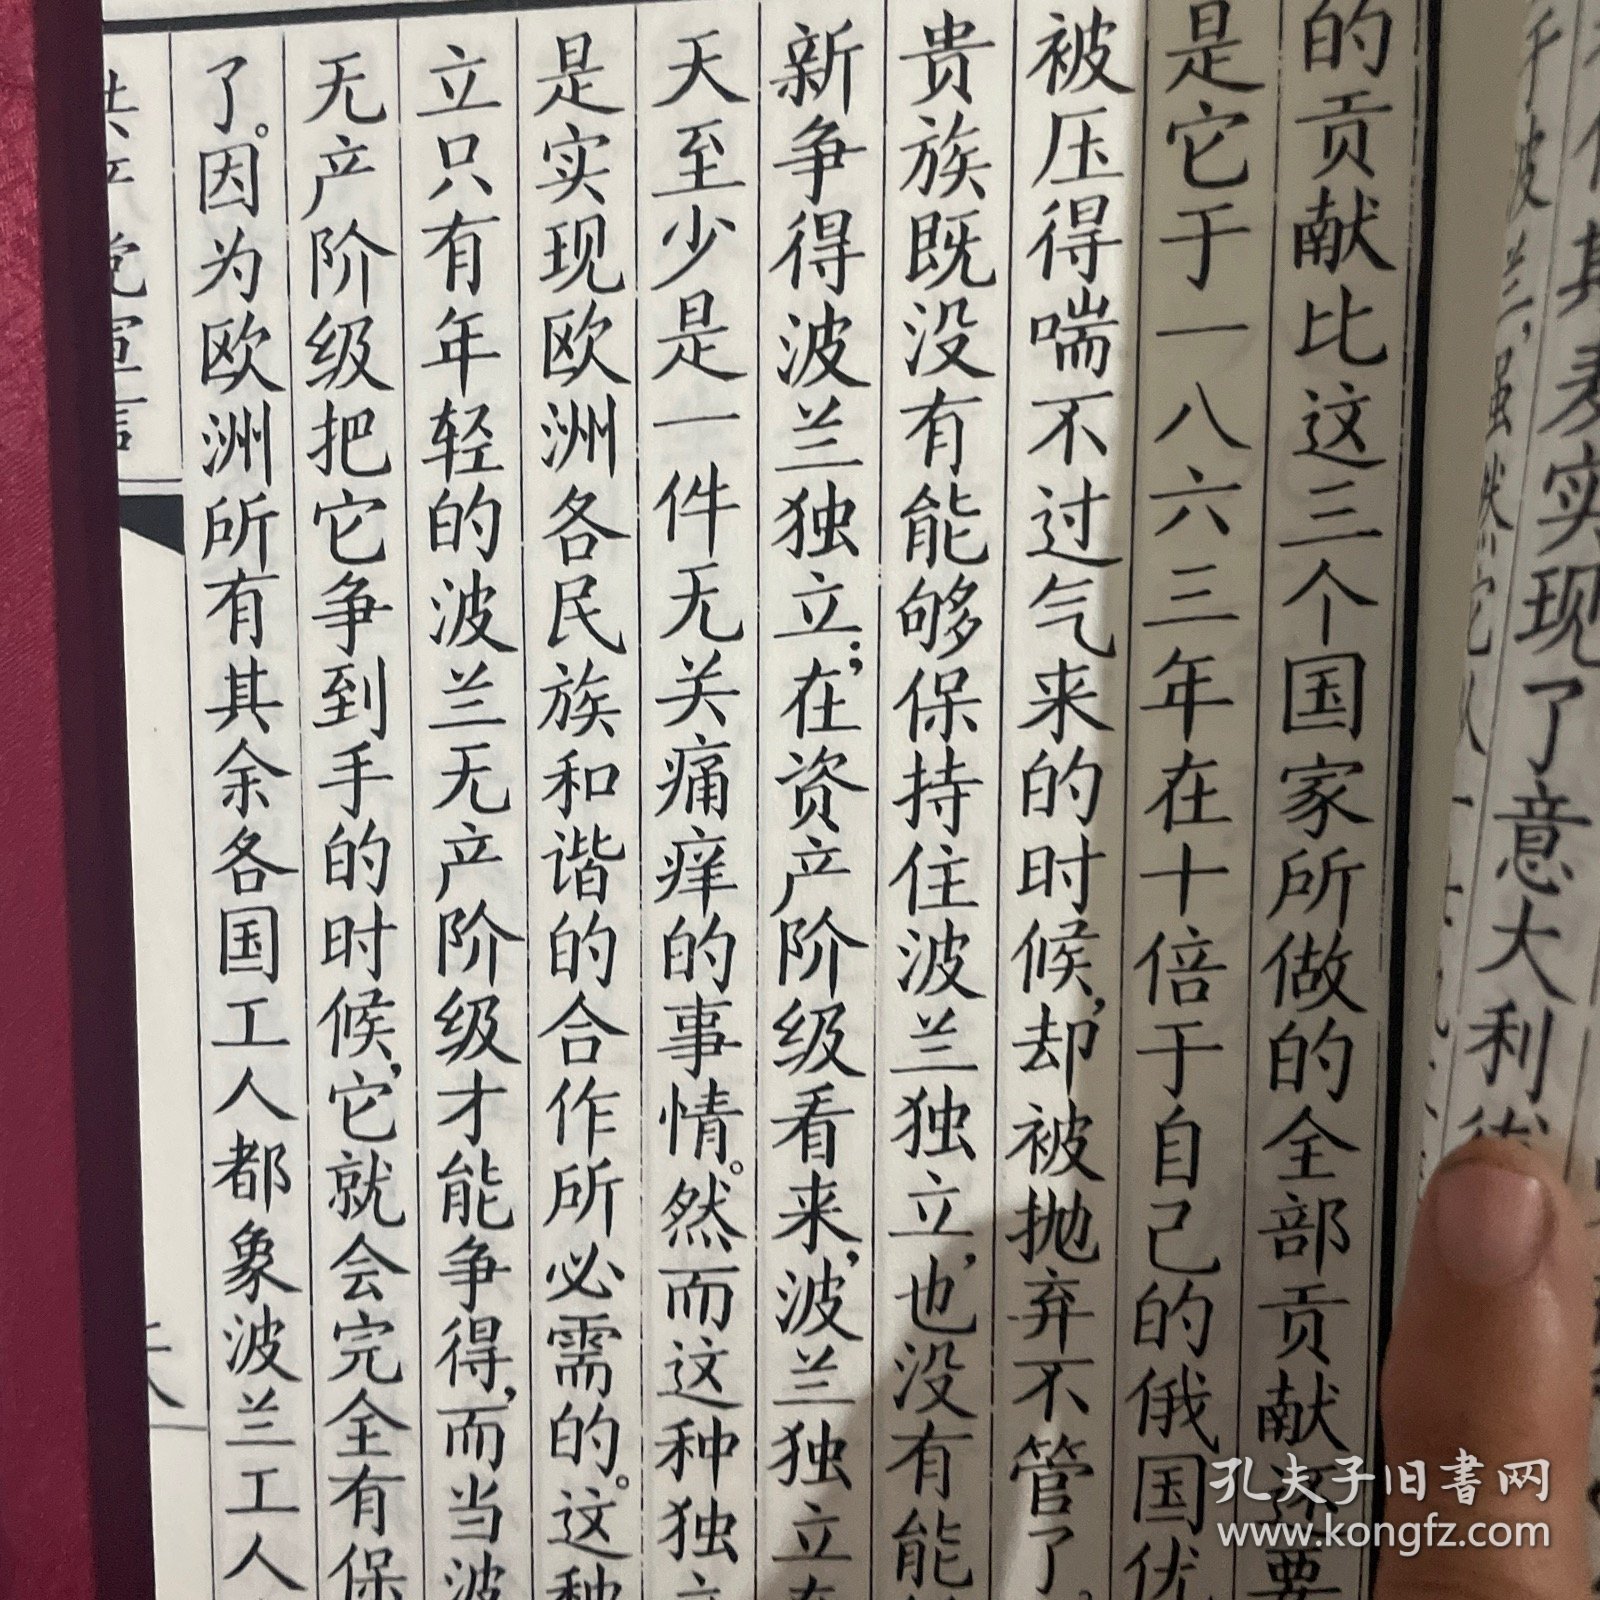 的贡献比这三个国家所做的全部贡献还要
是它于一八六三年在十倍于自己的俄国优
被压得喘不过气来的时候，却被抛弃不管了。
贵族既没有能够保持住波兰独立，也没有能
新争得波兰独立；在资产阶级看来，波兰独立在
天至少是一件无关痛痒的事情。然而这种独立
是实现欧洲各民族和谐的合作所必需的。这种
立只有年轻的波兰无产阶级才能争得，而当波
无产阶级把它争到手的时候，它就会完全有保
了。因为欧洲所有其余各国工人都象波兰工人
共产党宣言
其实现了意大利
孔夫子旧书网
www.kongfz.com